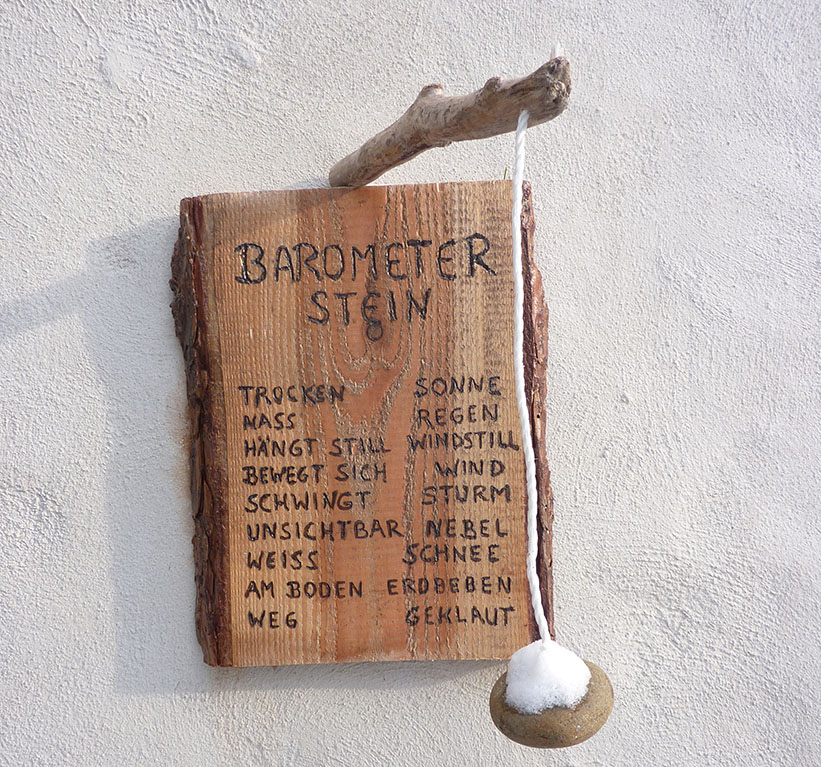 BAROMETER
STEIN
TROCKEN SONNE
NASS REGEN
HÄNGT STILL WINDSTILL
BEWEGT SICH WIND
SCHWINGT STURM
UNSICHTBAR NEBEL
WEISS SCHNEE
AM BODEN ERDBEBEN
WEG GEKLAUT